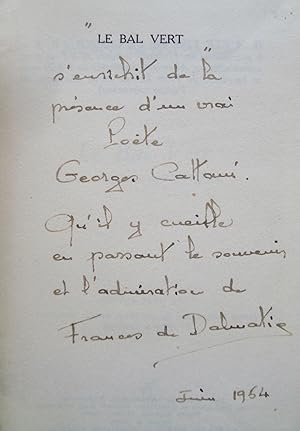 "LE BAL VERT"
s'enrichit de la
présence d'un vrai
Poète
Georges Cattaui.
Qu'il y cueille
en passant le souvenir
et l'admiration de
Frances de Dalmatie
Juin 1954